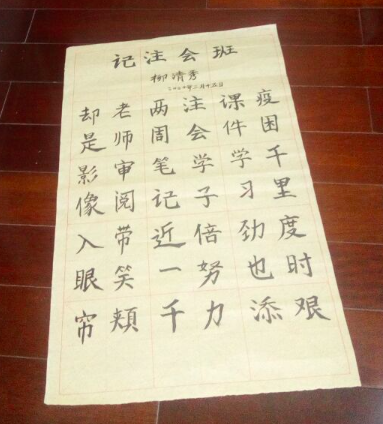 记注会班
柳清秀
疫困千里度时艰
课件学习劲也添
注会学子倍努力
两周笔记近一千
老师审阅带笑颊
却是影像入眼帘